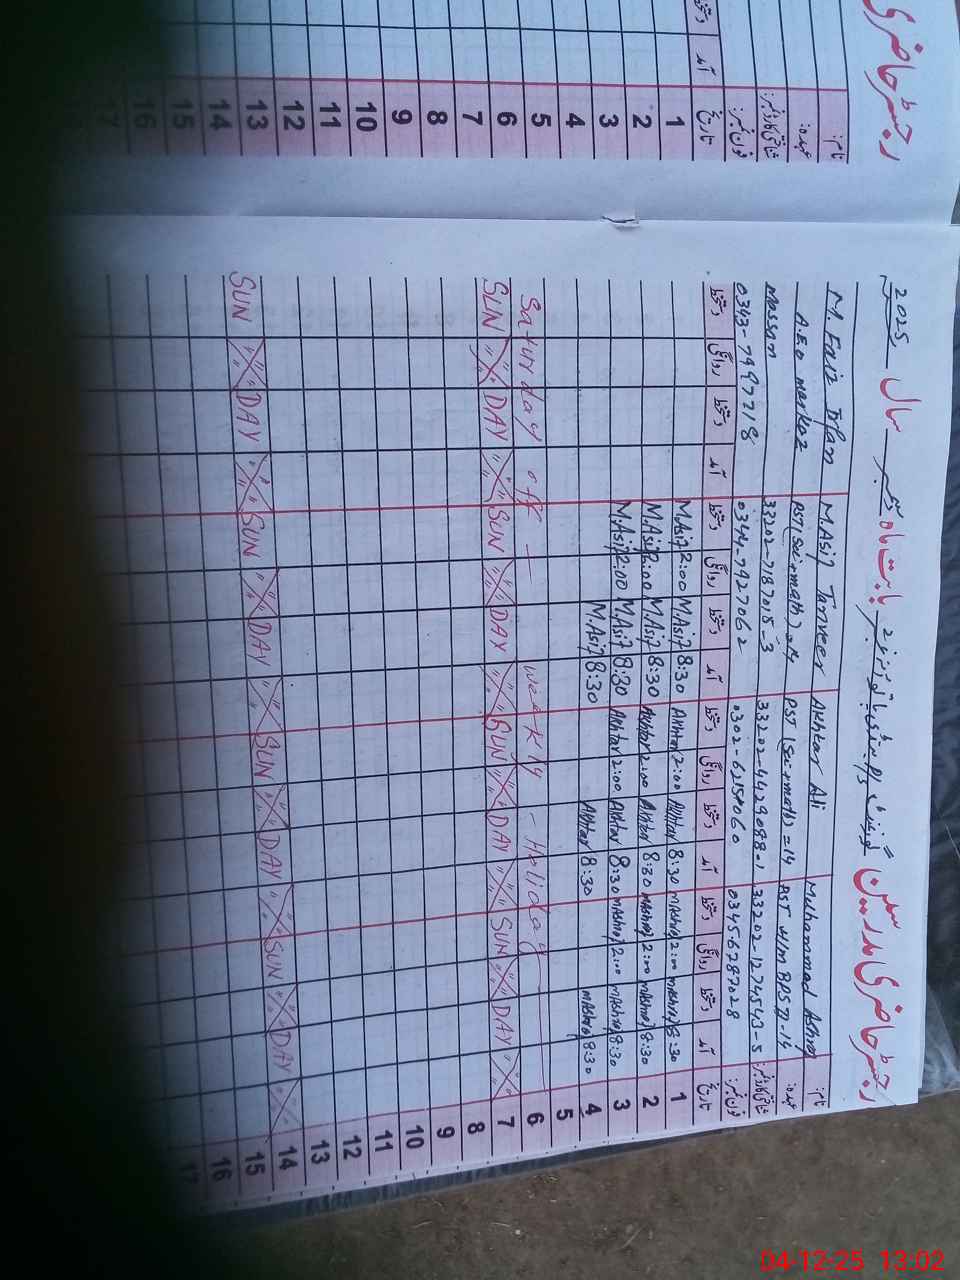 رجسٹر حاضری
نام:
عہدہ:
شناختی کارڈ نمبر:
فون نمبر:
تاریخ آمد دستخط
1
2
3
4
5
6
7
8
9
10
11
12
13
14
15
16
17
رجسٹر حاضری مدرسین بابت ماہ دسمبر سال 2025
نام: Muhammad Ashraf Akhtar Ali M.Asif Tanveer M Faiz Irfan
عہدہ: PST (Sci+math)=14 PST (Sci+math)=14 A.E.O markaz
شناختی کارڈ نمبر: 33202-1274543-5 33202-4429088-1 33202-7187015-3 Massan
فون نمبر: 03456787028 0344-7927062 0343-7997718
تاریخ آمد دستخط روانگی دستخط آمد دستخط روانگی دستخط آمد دستخط روانگی دستخط آمد دستخط روانگی دستخط
1 8:30 MAshraf 2:00 MAshraf 8:30 Akhtar 2:00 Akhtar 8:30 M.Asif 2:00 M.Asif
2 8:30 MAshraf 2:00 MAshraf 8:30 Akhtar 2:00 Akhtar 8:30 M.Asif 2:00 M.Asif
3 8:30 MAshraf 2:00 MAshraf 8:30 Akhtar 2:00 Akhtar 8:30 M.Asif 2:00 M.Asif
4 8:30 MAshraf 8:30 Akhtar 8:30 M.Asif
5
6 Saturday off - weekly - Holiday
7 SUN DAY SUN DAY SUN DAY SUN DAY
8
9
10
11
12
13
14 SUN DAY SUN DAY SUN DAY SUN DAY
15
16
17
04-12-25 13:02